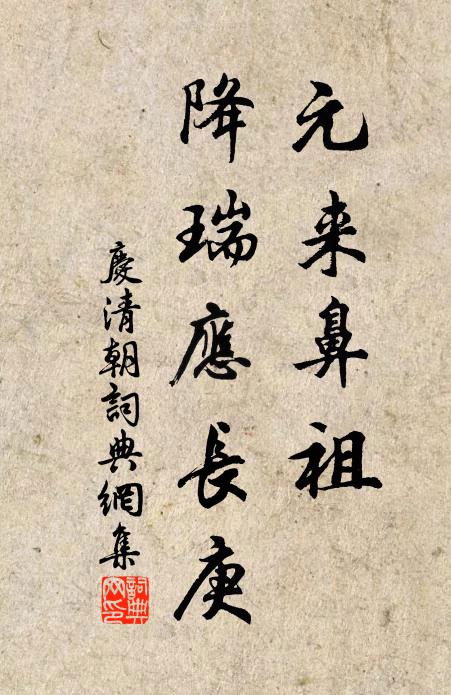 元来鼻祖
降瑞應長庚
慶清朝詞典網集
詞典
之印